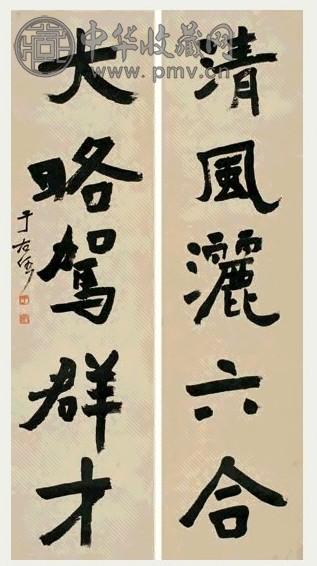 中华收藏网
www.pmv.cn
清風灑六合
大略駕群才
于右任